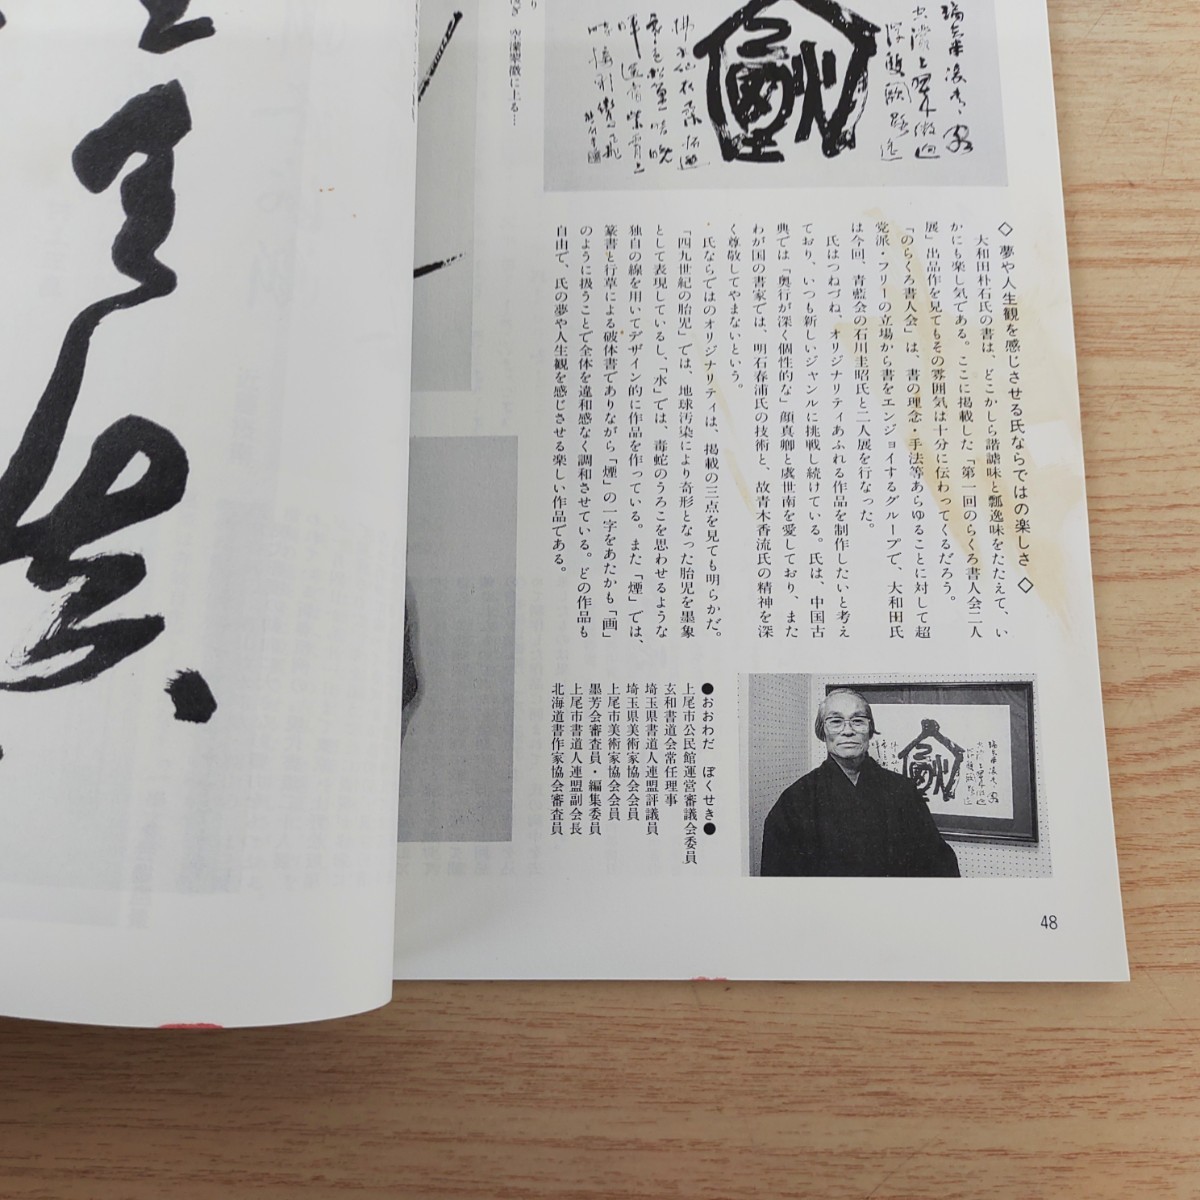 空濛翠微に上る…
◇ 夢や人生観を感じさせる氏ならではの楽しさ ◇
大和田朴石氏の書は、どこかしら諧謔味と飄逸味をたたえて、い
かにも楽し気である。ここに掲載した「第一回のらくろ書人会二人
展」出品作を見てもその雰囲気は十分に伝わってくるだろう。
「のらくろ書人会」は、書の理念・手法等あらゆることに対して超
党派・フリーの立場から書をエンジョイするグループで、大和田氏
は今回、青藍会の石川圭昭氏と二人展を行なった。
氏はつねづね、オリジナリティあふれる作品を制作したいと考え
ており、いつも新しいジャンルに挑戦し続けている。氏は、中国古
典では「奥行が深く個性的な」顔真卿と虞世南を愛しており、また
わが国の書家では、明石春浦氏の技術と、故青木香流氏の精神を深
く尊敬してやまないという。
氏ならではのオリジナリティは、掲載の三点を見ても明らかだ。
「四九世紀の胎児」では、地球汚染により奇形となった胎児を墨象
として表現しているし、「水」では、毒蛇のうろこを思わせるような
独自の線を用いてデザイン的に作品を作っている。また「煙」では、
篆書と行草による破体書でありながら「煙」の一字をあたかも「画」
のように扱うことで全体を違和感なく調和させている。どの作品も
自由で、氏の夢や人生観を感じさせる楽しい作品である。
●おおわだ ぼくせき●
上尾市公民館運営審議会委員
玄和書道会常任理事
埼玉県書道人連盟評議員
埼玉県美術家協会会員
上尾市美術家協会会員
墨芳会審査員・編集委員
上尾市書道人連盟副会長
北海道書作家協会審査員
48